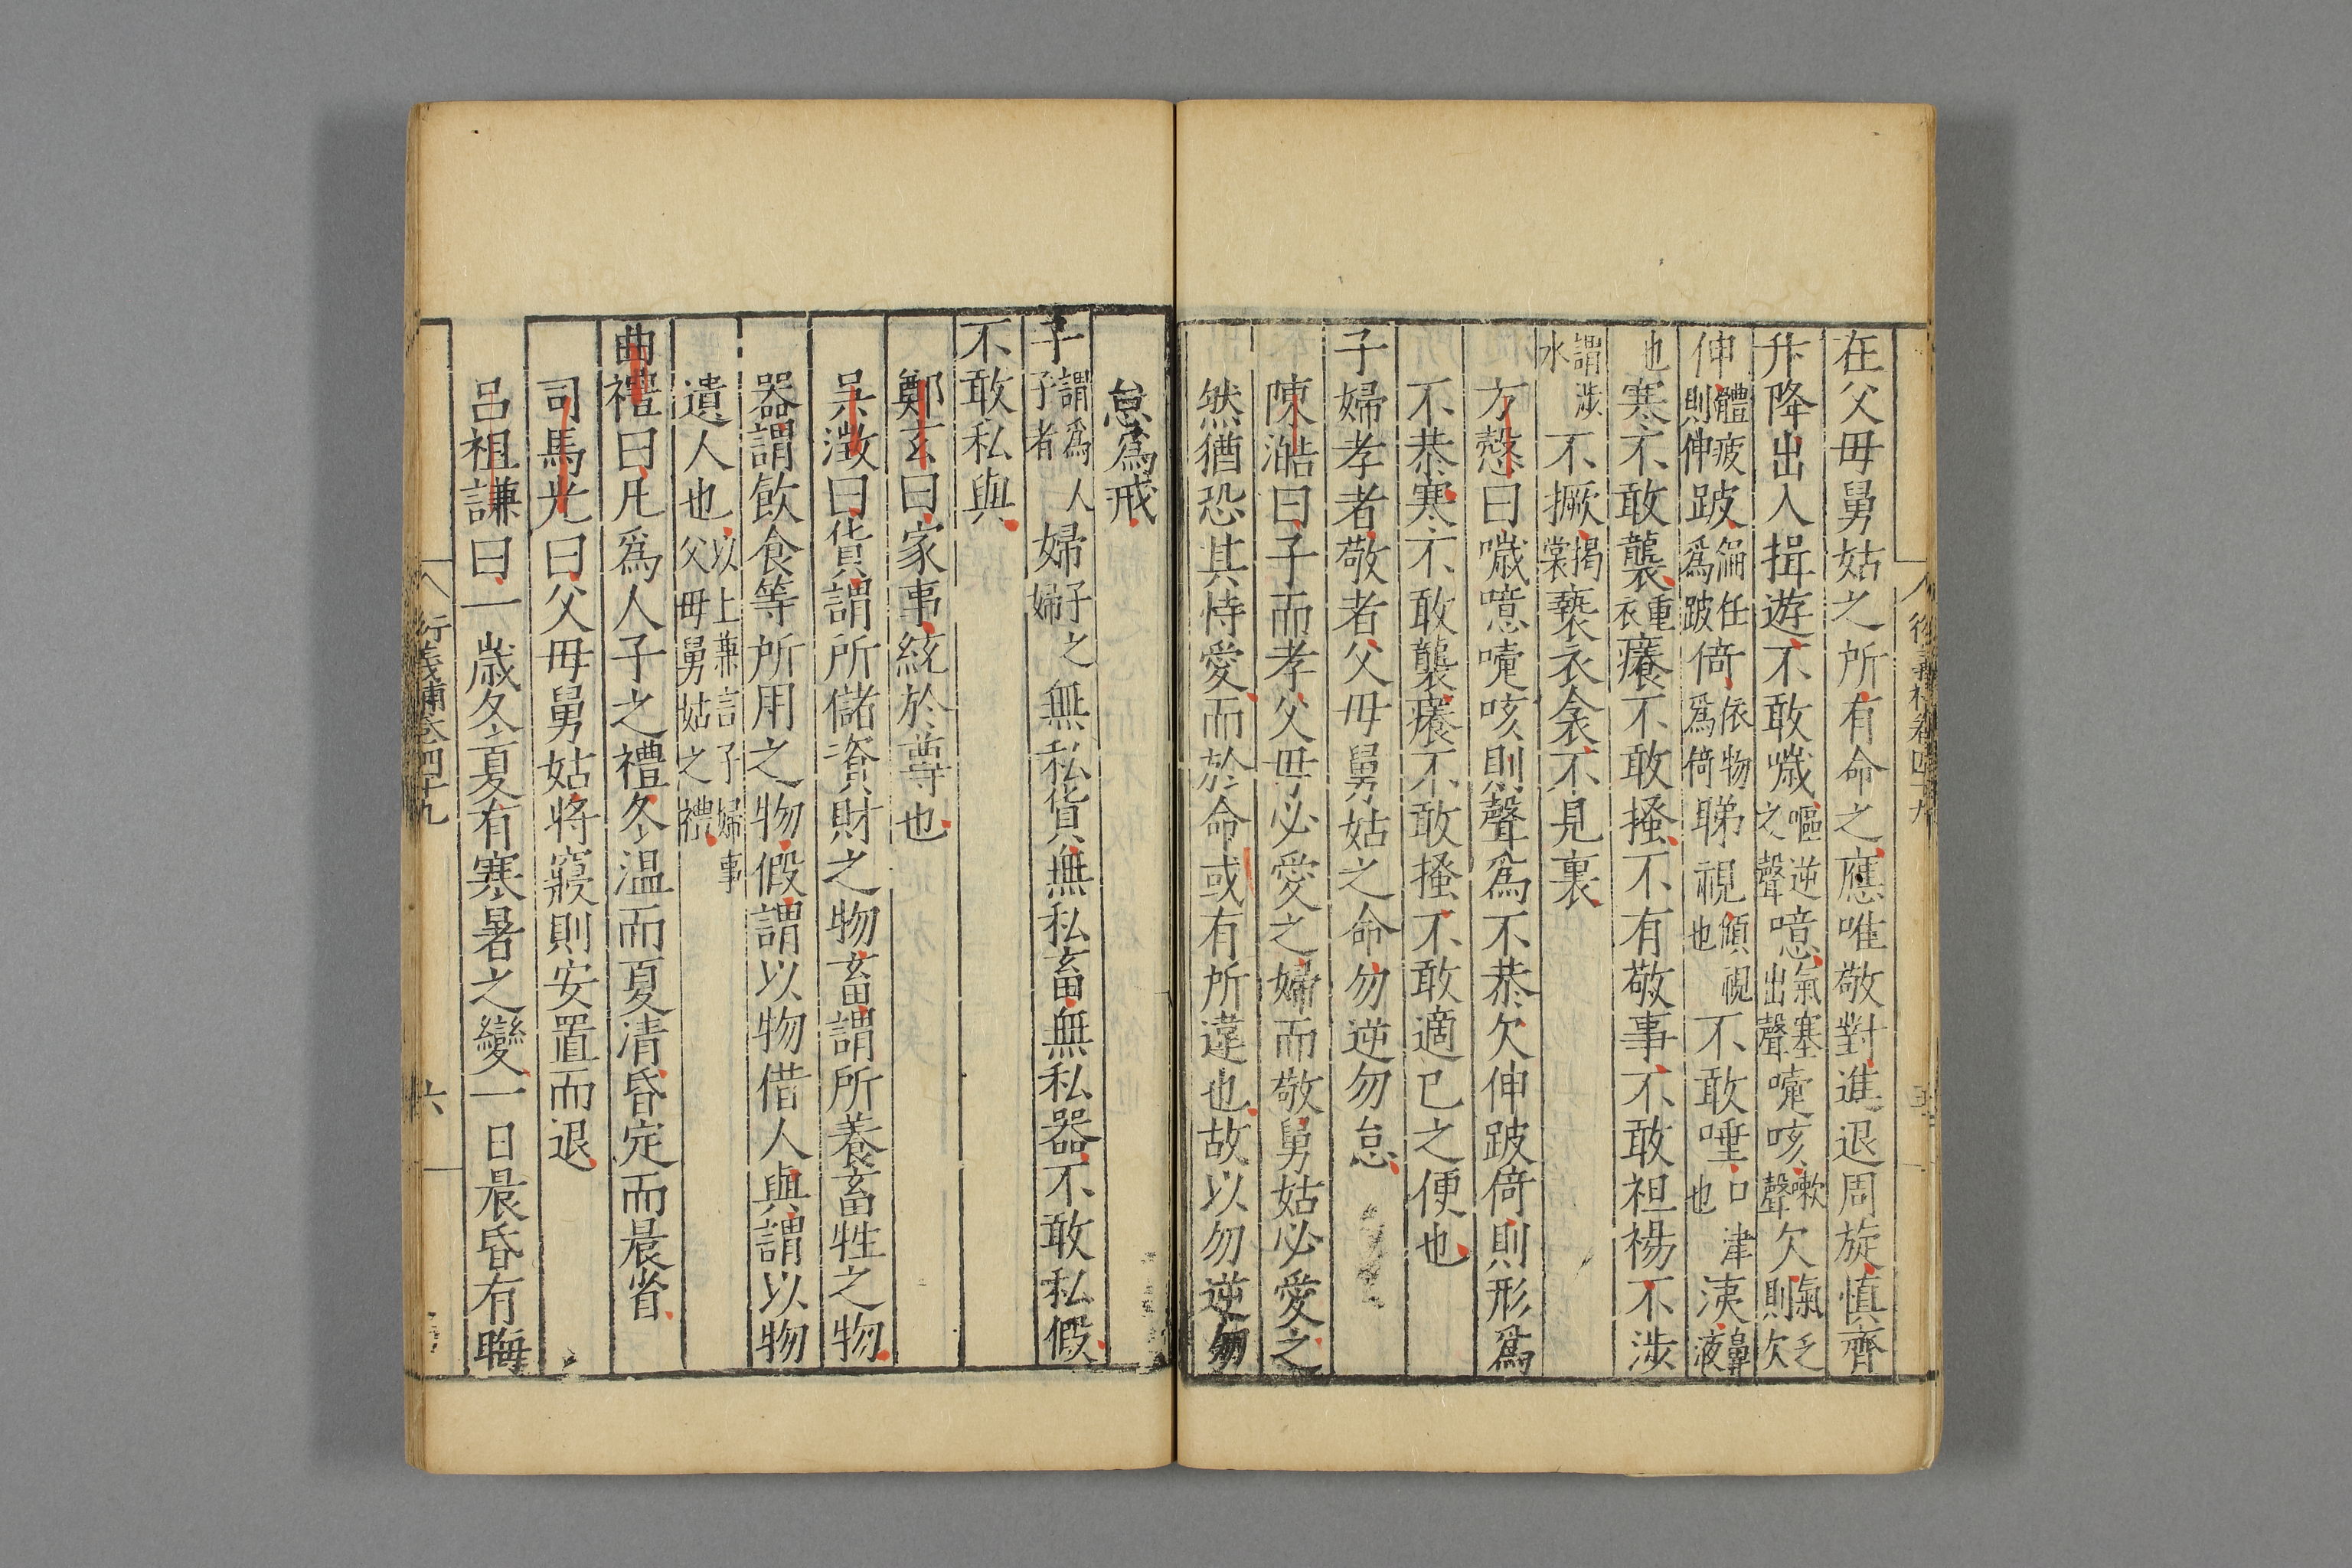 在父母舅姑之所有命之應唯敬對進退周旋慎齊
升降出入揖遊不敢噦嘔逆之聲噫氣塞出聲嚏咳嗽聲欠氣乏則欠
伸體疲則伸跛偏任爲跛倚依物爲倚睇視傾視也不敢唾口津也洟鼻液
也寒不敢襲重衣癢不敢搔不有敬事不敢袒裼不涉
謂涉水不撅揭裳褻衣衾不見裏
方慤曰噦噫嚏咳則聲爲不恭欠伸跛倚則形爲
不恭寒不敢襲癢不敢搔不敢適已之便也
子婦孝者敬者父母舅姑之命勿逆勿怠
陳澔曰子而孝父母必愛之婦而敬舅姑必愛之
然猶恐其恃愛而於命或有所違也故以勿逆勿
怠爲戒
子謂爲人子者婦子之婦無私貨無私畜無私器不敢私假
不敢私與
鄭玄曰家事統於尊也
吴澂曰貨謂所儲資財之物畜謂所養畜牲之物
器謂飲食等所用之物假謂以物借人與謂以物
遺人也以上兼言子婦事父母舅姑之禮
曲禮曰凡爲人子之禮冬温而夏清昏定而晨省
司馬光曰父母舅姑將寢則安置而退
呂祖謙曰一歲冬夏有寒暑之變一日晨昏有晦
衍義補卷四十九 六